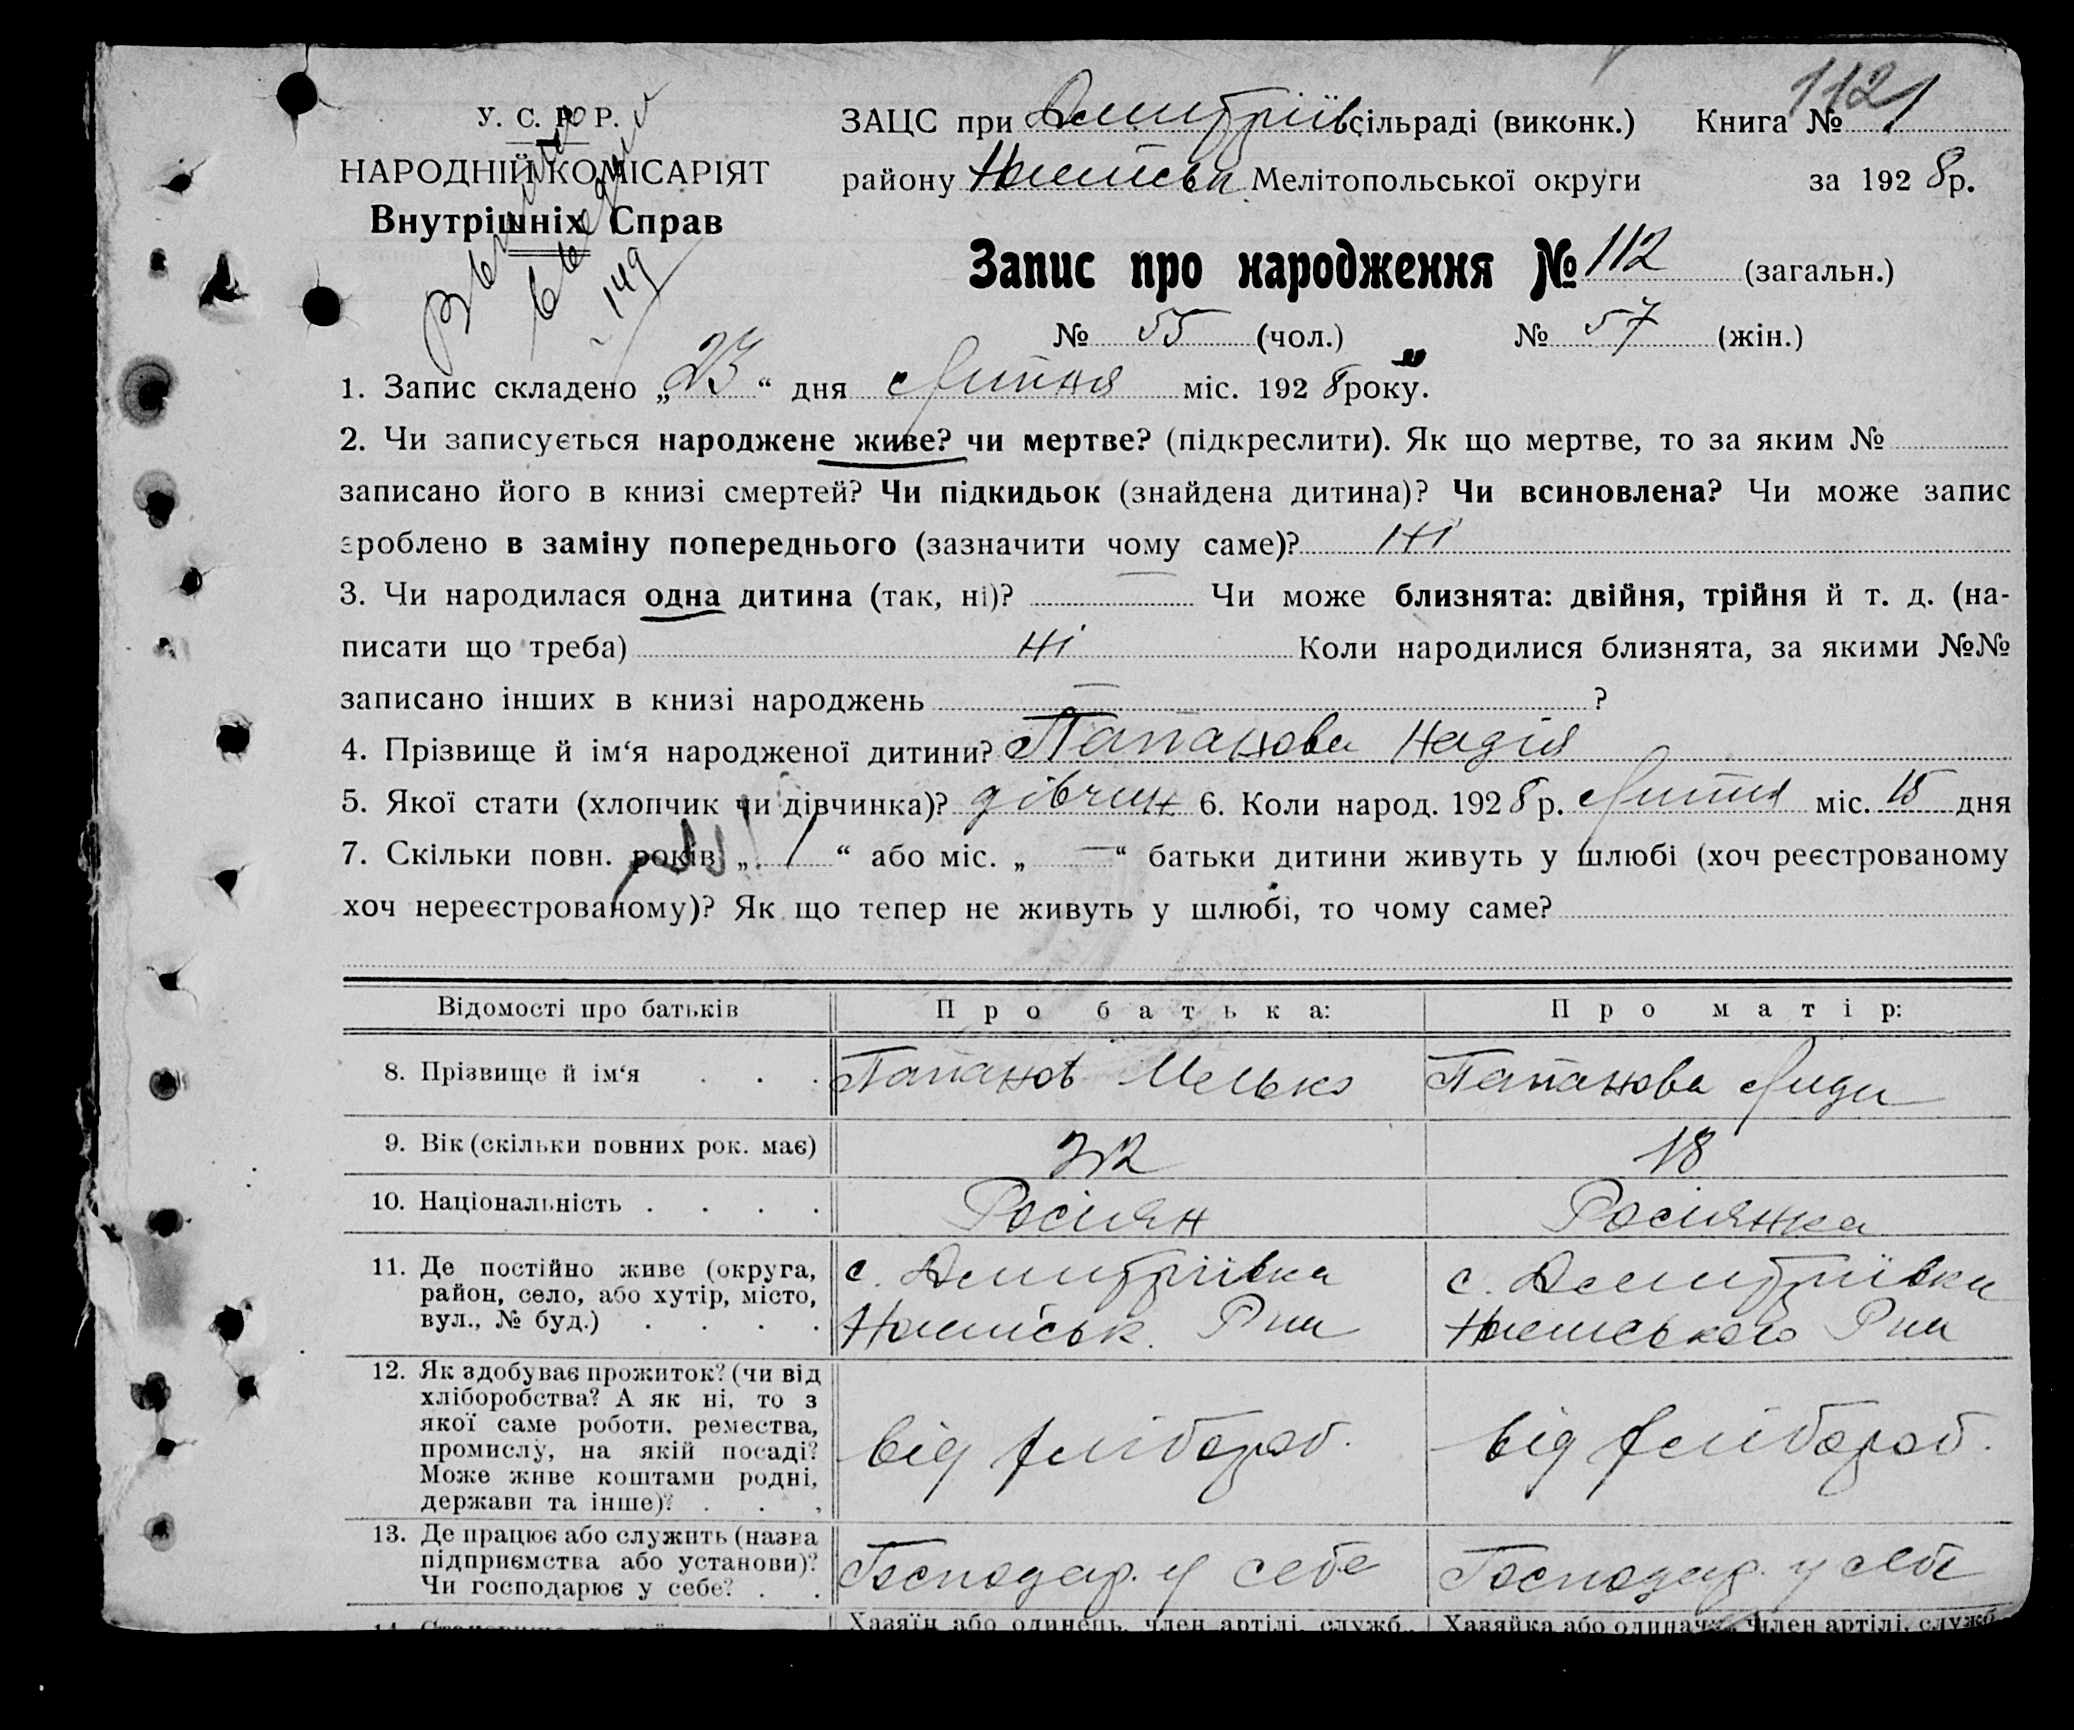 1121
У. С. Р. Р.
НАРОДНІЙ КОМІСАРІЯТ
Внутрішніх Справ
149
ЗАЦС при Дмитріїв сільраді (виконк.) Книга №
району Мелітопольської округи за 1928 р.
Запис про народження № 112 (загальн.)
№ 55 (чол.) № 57 (жін.)
1. Запис складено „23“ дня Липня міс. 1928 року.
2. Чи записується народжене живе? чи мертве? (підкреслити). Як що мертве, то за яким №
записано його в книзі смертей? Чи підкидьок (знайдена дитина)? Чи всиновлена? Чи може запис
зроблено в заміну попереднього (зазначити чому саме)? Ні
3. Чи народилася одна дитина (так, ні)? — Чи може близнята: двійня, трійня й т. д. (на-
писати що треба) Ні Коли народилися близнята, за якими №№
записано інших в книзі народжень — ?
4. Прізвище й ім‘я народженої дитини? Папанова Надія
5. Якої стати (хлопчик чи дівчинка)? дівчин 6. Коли народ. 1928 р. Липня міс. 15 дня
7. Скільки повн. років „ 1 “ або міс. „ — “ батьки дитини живуть у шлюбі (хоч реєстрованому
хоч нереєстрованому)? Як що тепер не живуть у шлюбі, то чому саме?
Відомості про батьків Про батька: Про матір:
8. Прізвище й ім‘я . . . Папанов Папанова Лиди
9. Вік (скільки повних рок. має) 32 18
10. Національність . . . . Росіян Росіянка
11. Де постійно живе (округа, с. Дмитріївка с. Дмитріївка
район, село, або хутір, місто, Р на Р на
вул., № буд.) . . . .
12. Як здобуває прожиток? (чи від
хліборобства? А як ні, то з
якої саме роботи, ремества,
промислу, на якій посаді? від хлібороб. від хлібороб.
Може живе коштами родні,
держави та інше)? . . .
13. Де працює або служить (назва
підприємства або установи)? Господар. у себе Господар. у себе
Чи господарює у себе? . .
14. Хазяїн або одинець, член артілі, служб. Хазяйка або одиначка, член артілі, служб